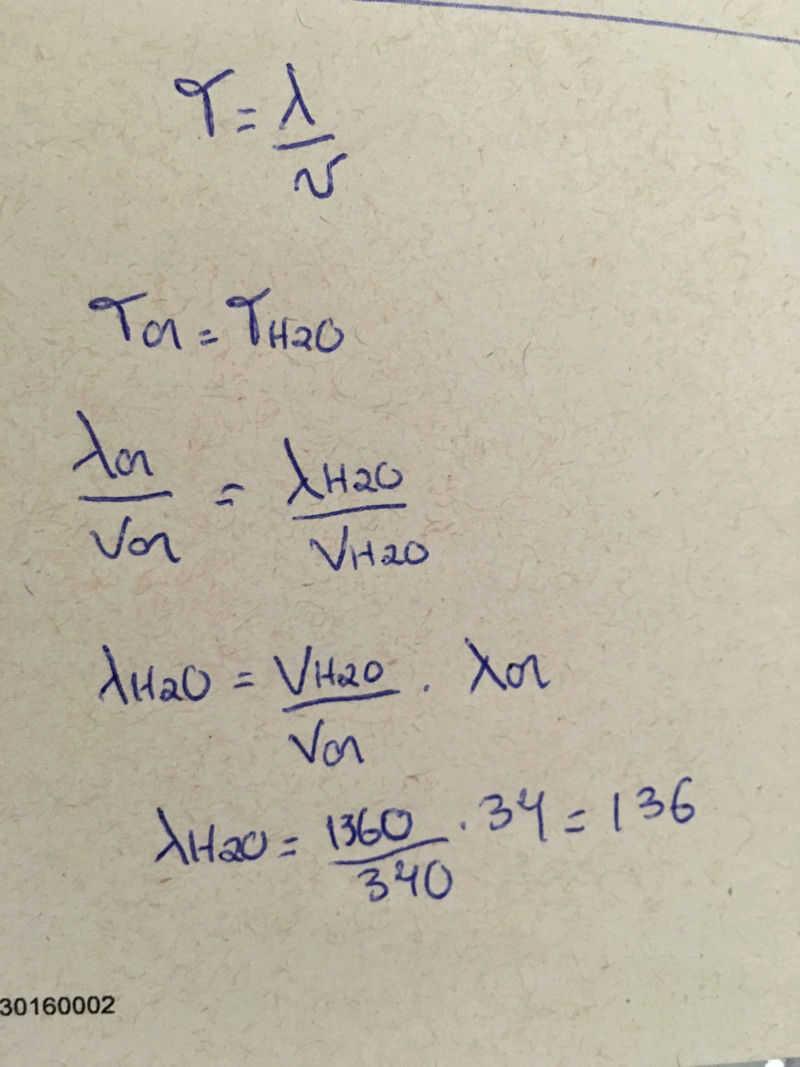 T = λ / v
Tar = TH2O
λar / Var = λH2O / VH2O
λH2O = VH2O / Var . λar
λH2O = 1360 / 340 . 34 = 136
30160002